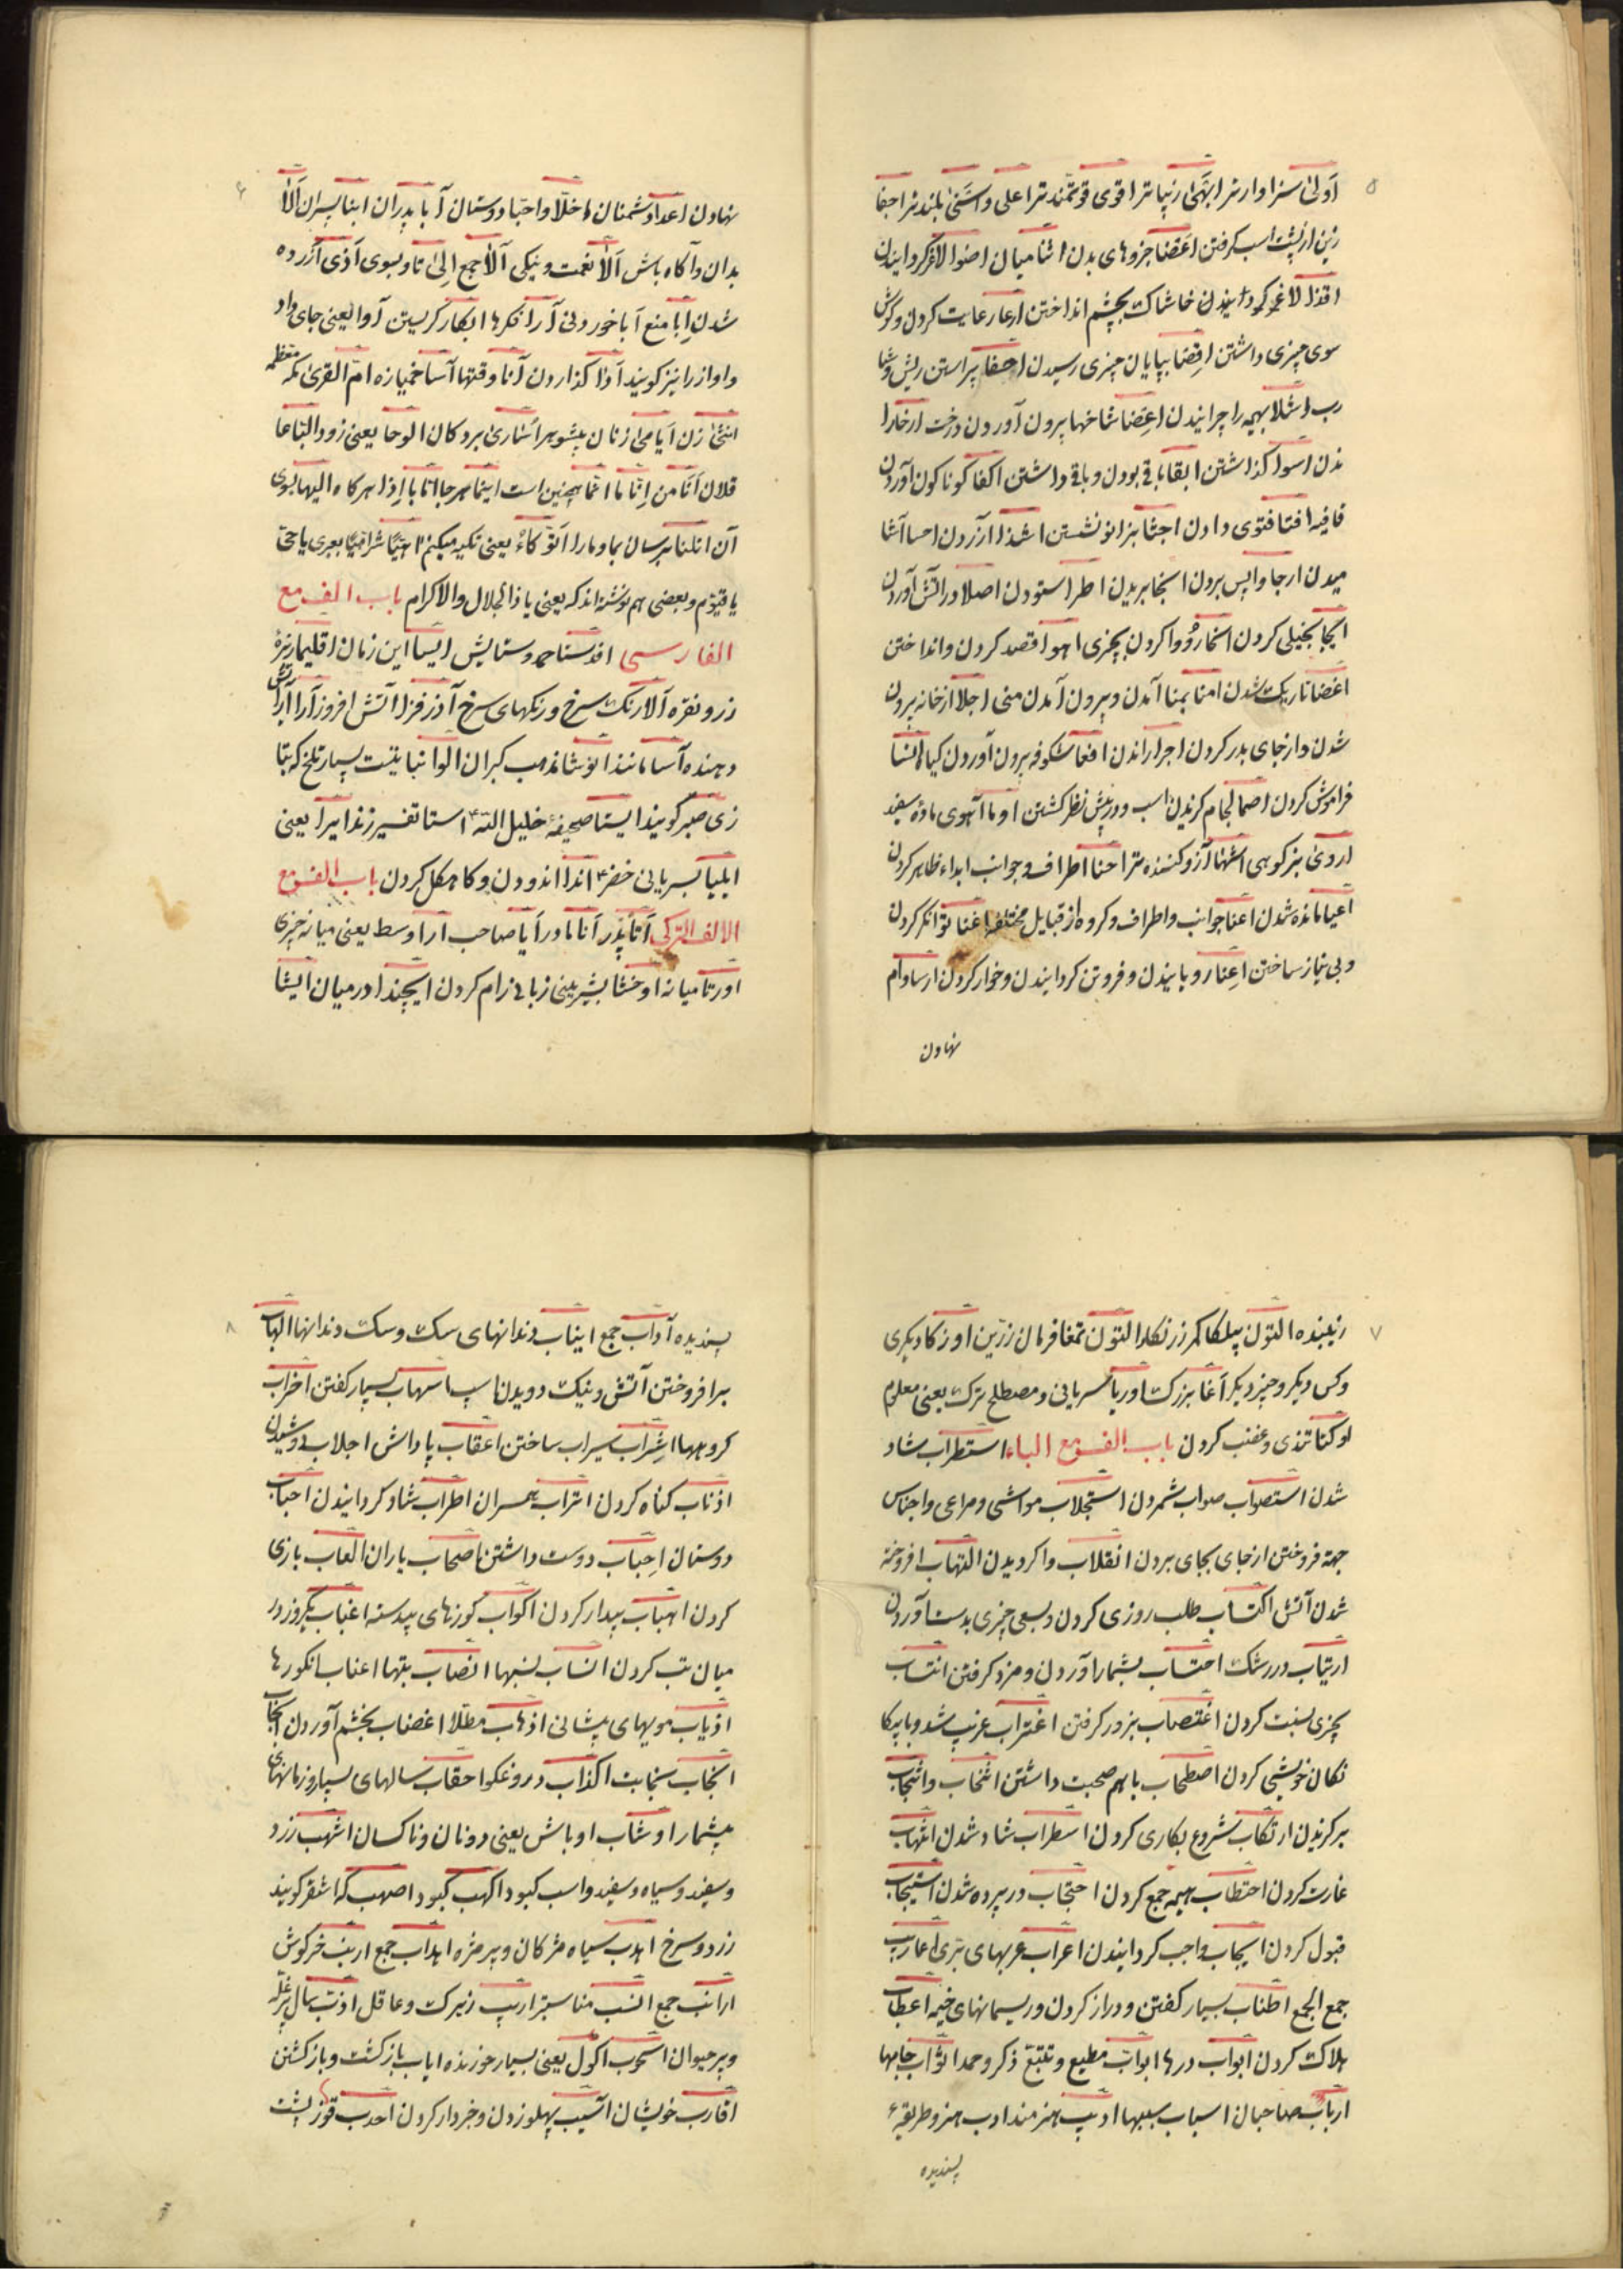 ۵
اَولیٰ سزاوارتر ابهیٰ زیباتر اقوی قوتمندتر اعلی واسنیٰ بلندتر احفا
زین از پشت اسب گرفتن اعضا جزوهای بدن اثنا میان اضوا لاغر کردانیدن
اقذا خاشاک بچشم انداختن ارعا رعایت کردن وکوش
سوی چیزی داشتن اِقضا بپایان چیزی رسیدن احفا پیراستن ریش و
رب اشلا بهیمه را چرانیدن اعضا شاخها بیرون آوردن درخت ارخا را
ندن اسوا کذاشتن ابقا باقی بودن وباقی داشتن اکفا کوناکون آوردن
قافیه افتا فتوی دادن اجثا بزانو نشستن اشذا آزردن احسا آشا
میدن ارجا واپس بردن انجا بریدن اطرا ستودن اصلا در آتش آوردن
بخیلی کردن انحا رو وا کردن بچیزی اهوا قصد کردن وانداختن
اغضا تاریک شدن امنا بمنا آمدن وبیرون آمدن منی اجلا از خانه بیرون
شدن واز جای بدر کردن اجرا راندن افعا شکوفه بیرون آوردن کیاه انسا
فراموش کردن اصما لجام کزیدن اسب ودر پیش نظر کشتن اوما آهوی ماده سفید
اروی بز کوهی اشها آرزو کننده تر احنا اطراف وجوانب ابداء ظاهر کردن
اعیا مانده شدن اعنا جوانب واطراف وکروه از قبایل مختلفه اغنا توانکر کردن
وبی نیاز ساختن اعنا رویانیدن وفروتن کردانیدن وخوار کردن ارسا وام
نهادن
۶
نهادن اعدا دشمنان اخلّا واحبّا دوستان آبا پدران ابنا پسران اَلا
بدان وآکاه باش اَلا نعمت ونیکی آلا جمع اِلیٰ تا وبسوی آذی آزرده
شدن اِبا منع آبا خوردنی آرا فکرها ابکا کریستن آوا یعنی جای داد
واواز را نیز کویند اَدا کذاردن آنا وقتها آسا خمیازه امّ القریٰ مکه معظمه
انثی زن اَیامیٰ زنان بیشوهر اُساریٰ بردکان الوحا یعنی زود البتا عا
قلان اَنَا من اِنّا ما انّما همچنین است اینما هر جا انّا با اِذا هرکاه الیها بسوی
آن انلنا برسان بما ومارا اَتوکّاءُ یعنی تکیه میکنم اهیّا شراهیّا بعبری یا حیّ
یا قیّوم وبعضی هم نوشته اند که یعنی یا ذا الجلال والاکرام باب الف مع
الفارسی افدستا حمد وستایش ایسا این زمان اقلیما ریزهٔ
زر ونقره آلا رنک سرخ ورنکهای سرخ آذرفزا آتش افروز آرا آرایش
دهنده آسا مانند انوشا مذهب کبران الوا نباتیست بسیار تلخ که بتا
زی صبر کویند ایستا صحیفهٔ خلیل الله ع استا تفسیر زند ایرا یعنی
ایلیا بسریانی خضر ع اندا اندودن وکاهکل کردن باب الف مع
الالف الترکی آتا پدر آنا مادر اَیا صاحب ارا وسط یعنی میانه چیزی
اورتا میانه اوخشا بشیرینی زبانی رام کردن ایچندا در میان ایشا
۷
زیبنده التون پیلکا کمر زرنکار التون تمغا فرمان زرّین اوزکا دیکری
وکس دیکر وچیز دیکر آغا بزرک اوریا بسریانی ومصطلح ترک یعنی معلم
اوکنا تندی وغضب کردن باب الف مع الباء استطراب شاد
شدن استصواب صواب شمردن استجلاب مواشی ومراعی واجناس
جهة فروختن از جای بجای بردن انقلاب واکردیدن التهاب افروخته
شدن آتش اکتساب طلب روزی کردن وبسعی چیزی بدست آوردن
ارتیاب در شک احتساب بشمار آوردن ومزد کرفتن انتساب
بچیزی نسبت کردن اغتصاب بزور کرفتن اغتراب غریب شد وبا بیکا
نکان خویشی کردن اصطحاب باهم صحبت داشتن انتخاب وانتجاب
برکزیدن ارتکاب شروع بکاری کردن اسطراب شاد شدن انتهاب
غارت کردن احتطاب هیمه جمع کردن احتجاب در پرده شدن استیجاب
قبول کردن ایجاب واجب کردانیدن اعراب عربهای برّی اعاریب
جمع الجمع اطناب بسیار کفتن ودراز کردن وریسمانهای خیمه اعطاب
هلاک کردن ابواب درها ابواب مطیع وتتبّع ذکر وحمد اثواب جامها
ارباب صاحبان اسباب سببها ادیب هنرمند ادب هنر وطریقهٔ
پسندیده
۸
پسندیده آداب جمع انیاب دندانهای سک وسک دندانها الهاب
برافروختن آتش ونیک دویدن اسپ اسهاب بسیار کفتن احزاب
کروهها اشراب سیراب ساختن اعقاب پاداش اجلاب
اذناب کناه کردن اتراب همسران اطراب شاد کردانیدن احباب
دوستان اِحباب دوست داشتن اصحاب یاران العاب بازی
کردن اهباب بیدار کردن اکواب کوزهای بیدسته اغباب یکروز در
میان تب کردن انساب نسبها انصاب بتها اعناب انکورها
اذیاب مویهای پیشانی اذهاب مطلّا اغضاب بخشم آوردن
انجاب نجابت اکذاب دروغکو احقاب سالهای بسیار وزمانهای
بیشمار اوشاب اوباش یعنی دونان وناکسان اشهب زرد
وسفید وسیاه وسفید واسب کبود اکهب کبود اصهب که اشقر کویند
زرد وسرخ اهدب سیاه مژکان وپر مژه اهداب جمع ارنب خرکوش
ارانب جمع انسب مناسبتر اریب زیرک وعاقل اذنب سال پر غلّه
وپر حیوان اسحوب اکول یعنی بسیار خورنده ایاب بازکشت وبازکشتن
اقارب خویشان آسیب پهلو زدن وخبردار کردن احدب قوز پشت